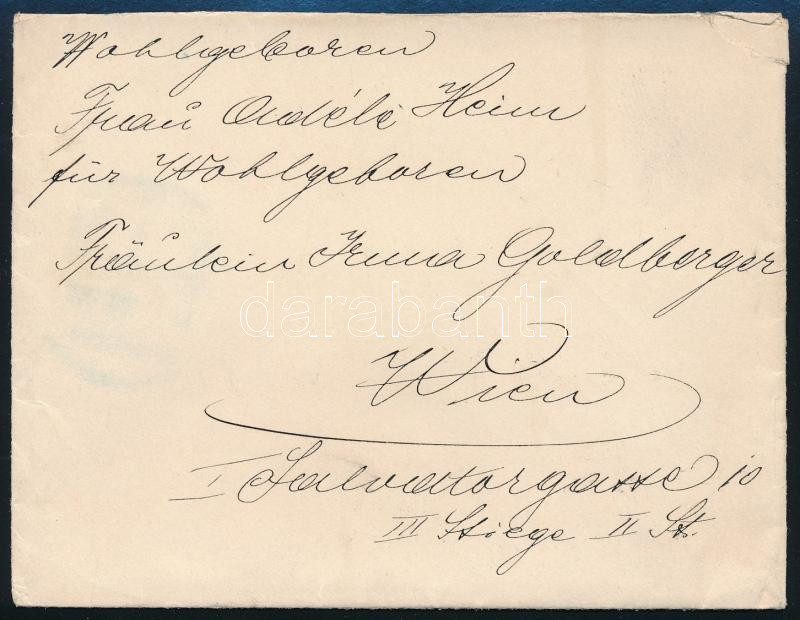 Wohlgeboren
Frau Adéle Heim
für Wohlgeboren
Fräulein Irma Goldberger
darabanth
Wien
I Salvatorgasse 10
III Stiege II St.